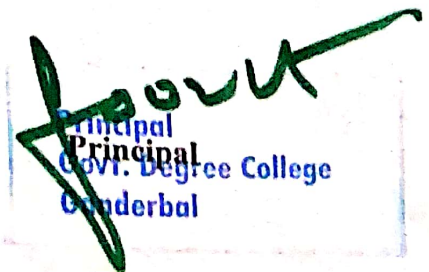 Principal
Principal
Govt. Degree College
Ganderbal